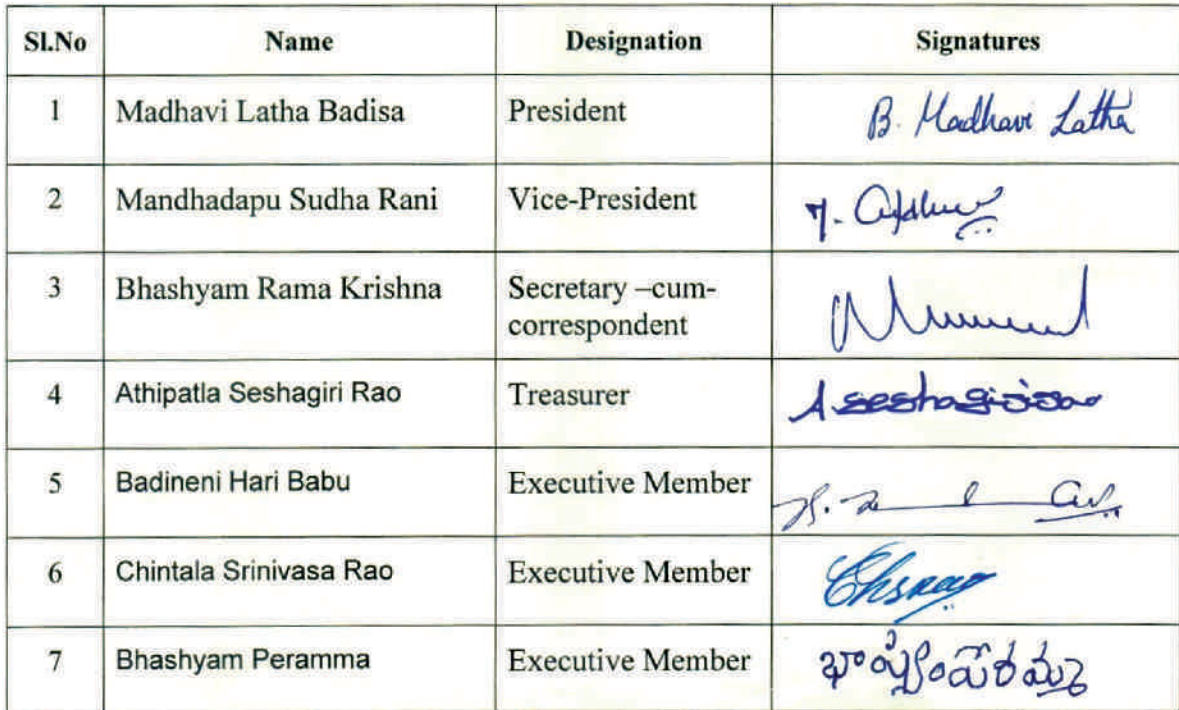 Sl.No Name Designation Signatures
1 Madhavi Latha Badisa President B. Madhavi Latha
2 Mandhadapu Sudha Rani Vice-President
3 Bhashyam Rama Krishna Secretary –cum-
correspondent
4 Athipatla Seshagiri Rao Treasurer A. Seshagirirao
5 Badineni Hari Babu Executive Member
6 Chintala Srinivasa Rao Executive Member Chsrao
7 Bhashyam Peramma Executive Member భాష్యంపేరమ్మ